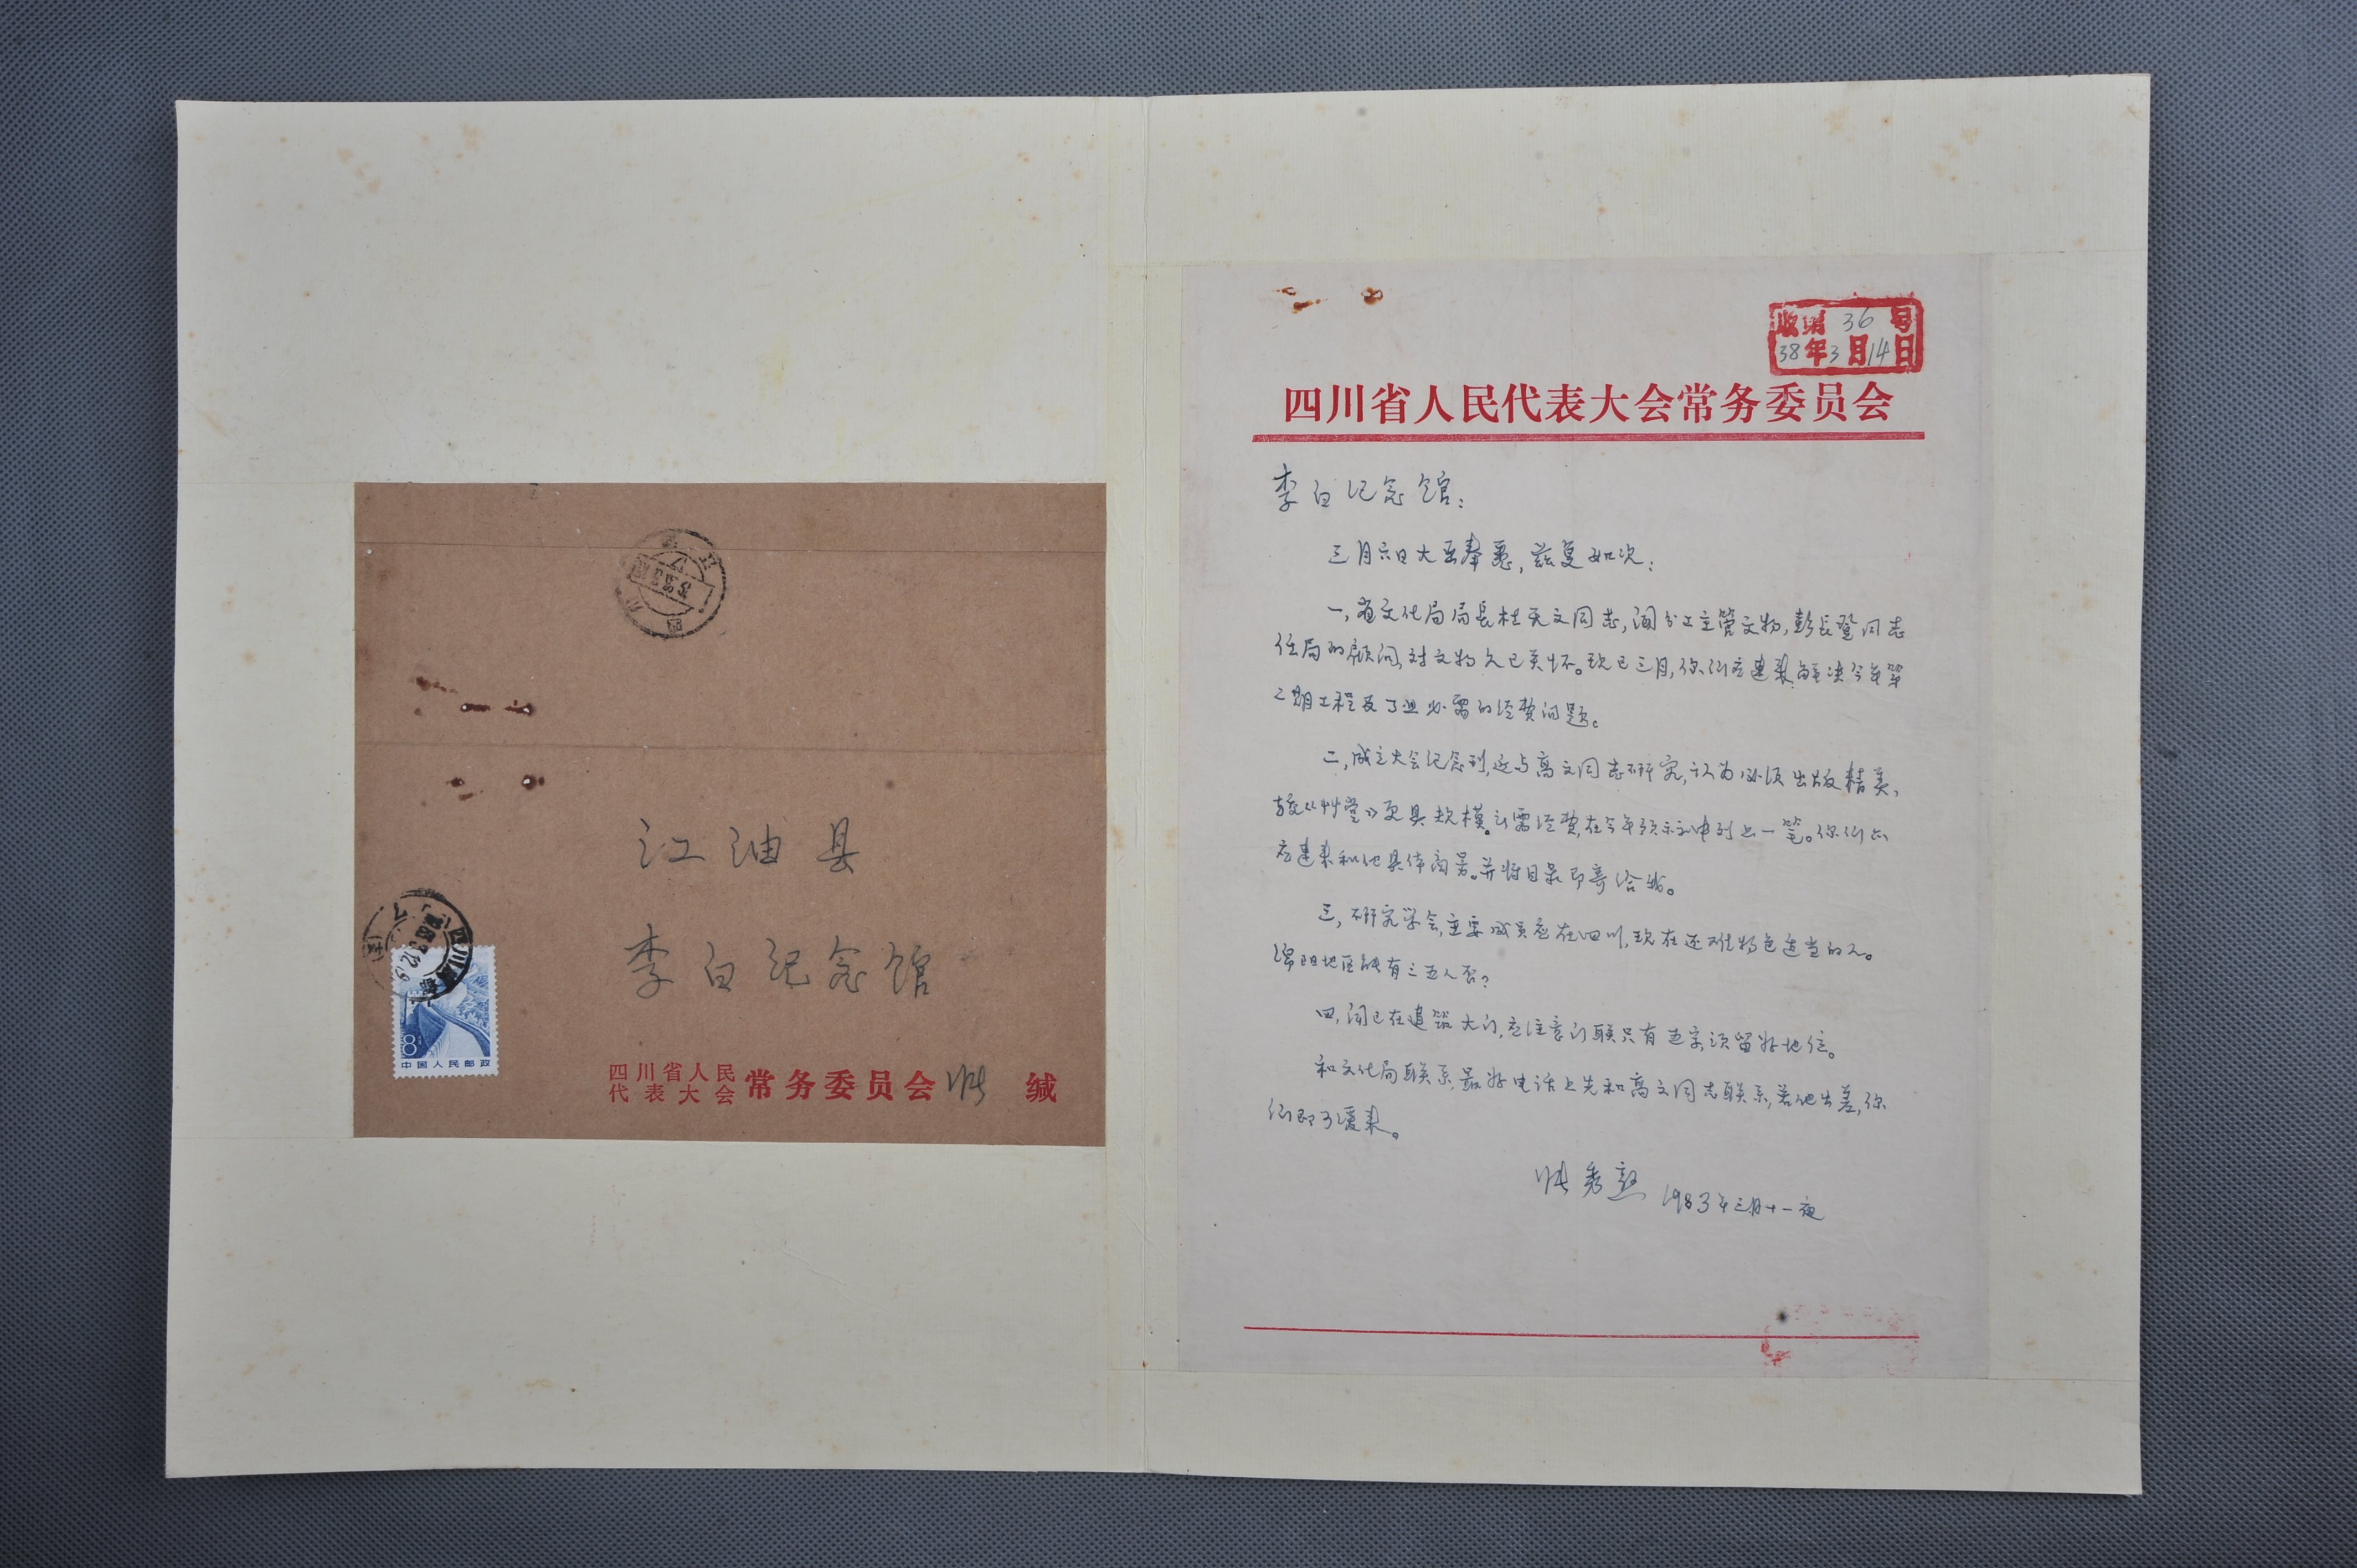 江油县
李白纪念馆
四川省人民
代表大会
常务委员会 张 缄
8
中国人民邮政
收 第 36 号
38年3月14日
四川省人民代表大会常务委员会
李白纪念馆：
三月六日大函奉悉，兹复如次：
一，省文化局局长杜天文同志，闻分工主管文物，彭长登同志
任局的顾问，对文物久已关怀。现已三月，你们应速来解决今年第
二期工程及了迫必需的经费问题。
二，成立大会纪念刊，近与高文同志研究，认为必须出版精美，
较《草堂》更具规模。所需经费，在今年预示中列上一笔。你们亦
应速来和他具体商量。并将目录即寄给我。
三，研究学会，主要成员应在四川，现在还难物色适当的人。
绵阳地区能有三五人否？
四，闻已在建筑大门，应注意门联只有五字，须留好地位。
和文化局联系，最好电话上先和高文同志联系，若他出差，你
们即可缓来。
张秀熟 1983年三月十一夜